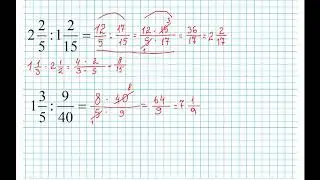 2 2/5 : 1 2/15 = 12/5 : 17/15 = 12 · 15 3/5 · 17 = 36/17 = 2 2/17
1 1/3 : 2 1/2 = 4 · 2/3 · 5 = 8/15
1 3/5 : 9/40 = 8 · 40 8/1 5 · 9 = 64/9 = 7 1/9